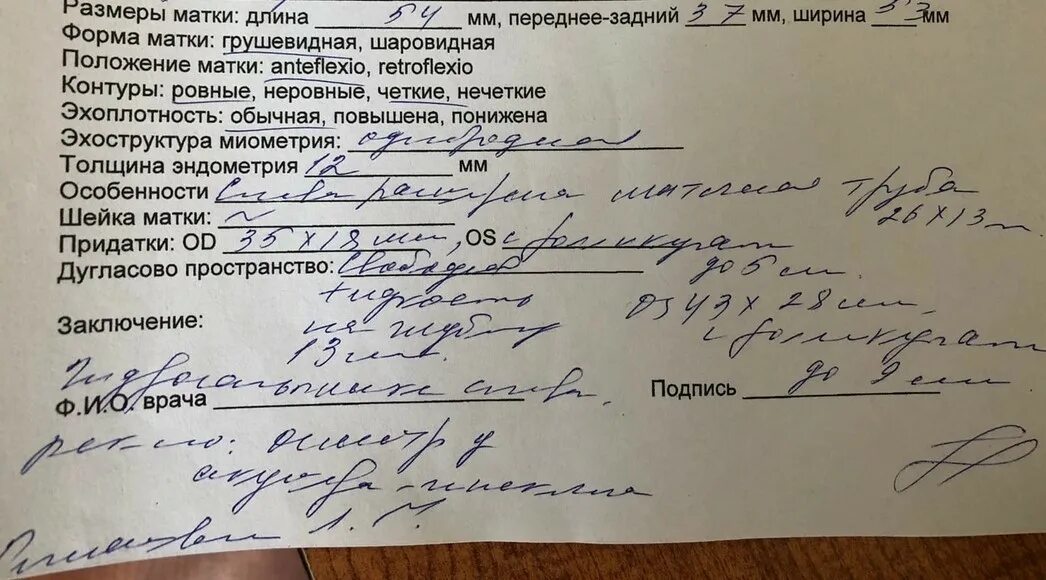 Размеры матки: длина 54 мм, переднее-задний 37 мм, ширина 53 мм
Форма матки: грушевидная, шаровидная
Положение матки: anteflexio, retroflexio
Контуры: ровные, неровные, четкие, нечеткие
Эхоплотность: обычная, повышена, понижена
Эхоструктура миометрия: однородная
Толщина эндометрия 12 мм
Особенности Слева расширена маточная труба
26 х 13 м
Шейка матки: ~
Придатки: OD 35 х 18 мм, OS с фолликулами
до 5 мм.
Дугласово пространство: Свободно
+ жидкость OS 43 х 28 мм,
на глубину с фолликулами
13 мм. до 9 мм
Заключение:
Гидросальпинкс слева.
Ф.И.О. врача Подпись
рек-но: осмотр у
акушера-гинеколога